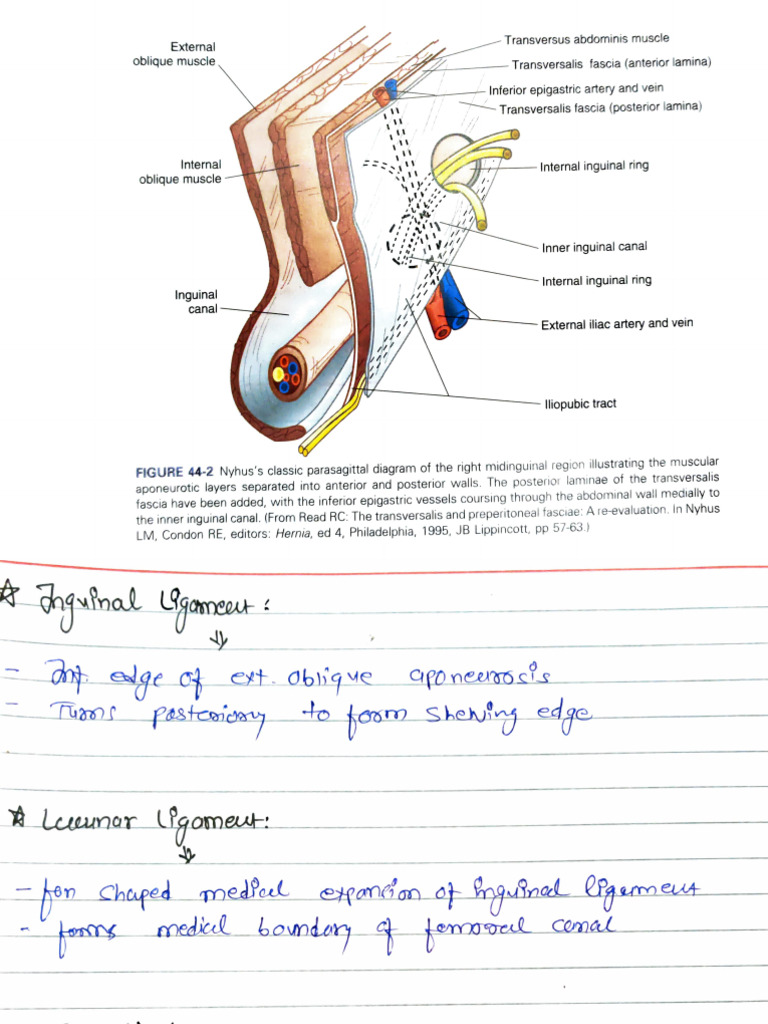 External
oblique muscle
Transversus abdominis muscle
Transversalis fascia (anterior lamina)
Inferior epigastric artery and vein
Transversalis fascia (posterior lamina)
Internal
oblique muscle
Internal inguinal ring
Inner inguinal canal
Internal inguinal ring
Inguinal
canal
External iliac artery and vein
Iliopubic tract
FIGURE 44-2 Nyhus's classic parasagittal diagram of the right midinguinal region illustrating the muscular
aponeurotic layers separated into anterior and posterior walls. The posterior laminae of the transversalis
fascia have been added, with the inferior epigastric vessels coursing through the abdominal wall medially to
the inner inguinal canal. (From Read RC: The transversalis and preperitoneal fasciae: A re-evaluation. In Nyhus
LM, Condon RE, editors: Hernia, ed 4, Philadelphia, 1995, JB Lippincott, pp 57-63.)
☆ Inguinal Ligament :
- Inf. edge of ext. oblique aponeurosis
- Turns posteriorly to form shelving edge
☆ Lacunar Ligament:
- fan shaped medial expansion of inguinal ligament
- forms medial boundary of femoral canal